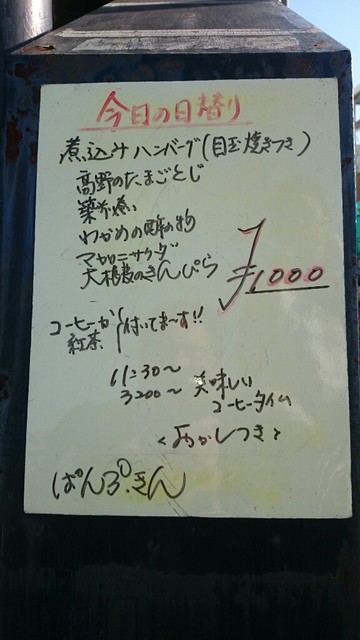 今日の日替り
煮込みハンバーグ(目玉焼きつき)
高野のたまごとじ
築前煮
わかめの酢の物
マカロニサラダ
大根葉のきんぴら
¥1000
コーヒーか
紅茶
付いてま〜す!!
11:30〜
3:00〜 美味しい
コーヒータイム
<おかしつき>
ぱんぷきん